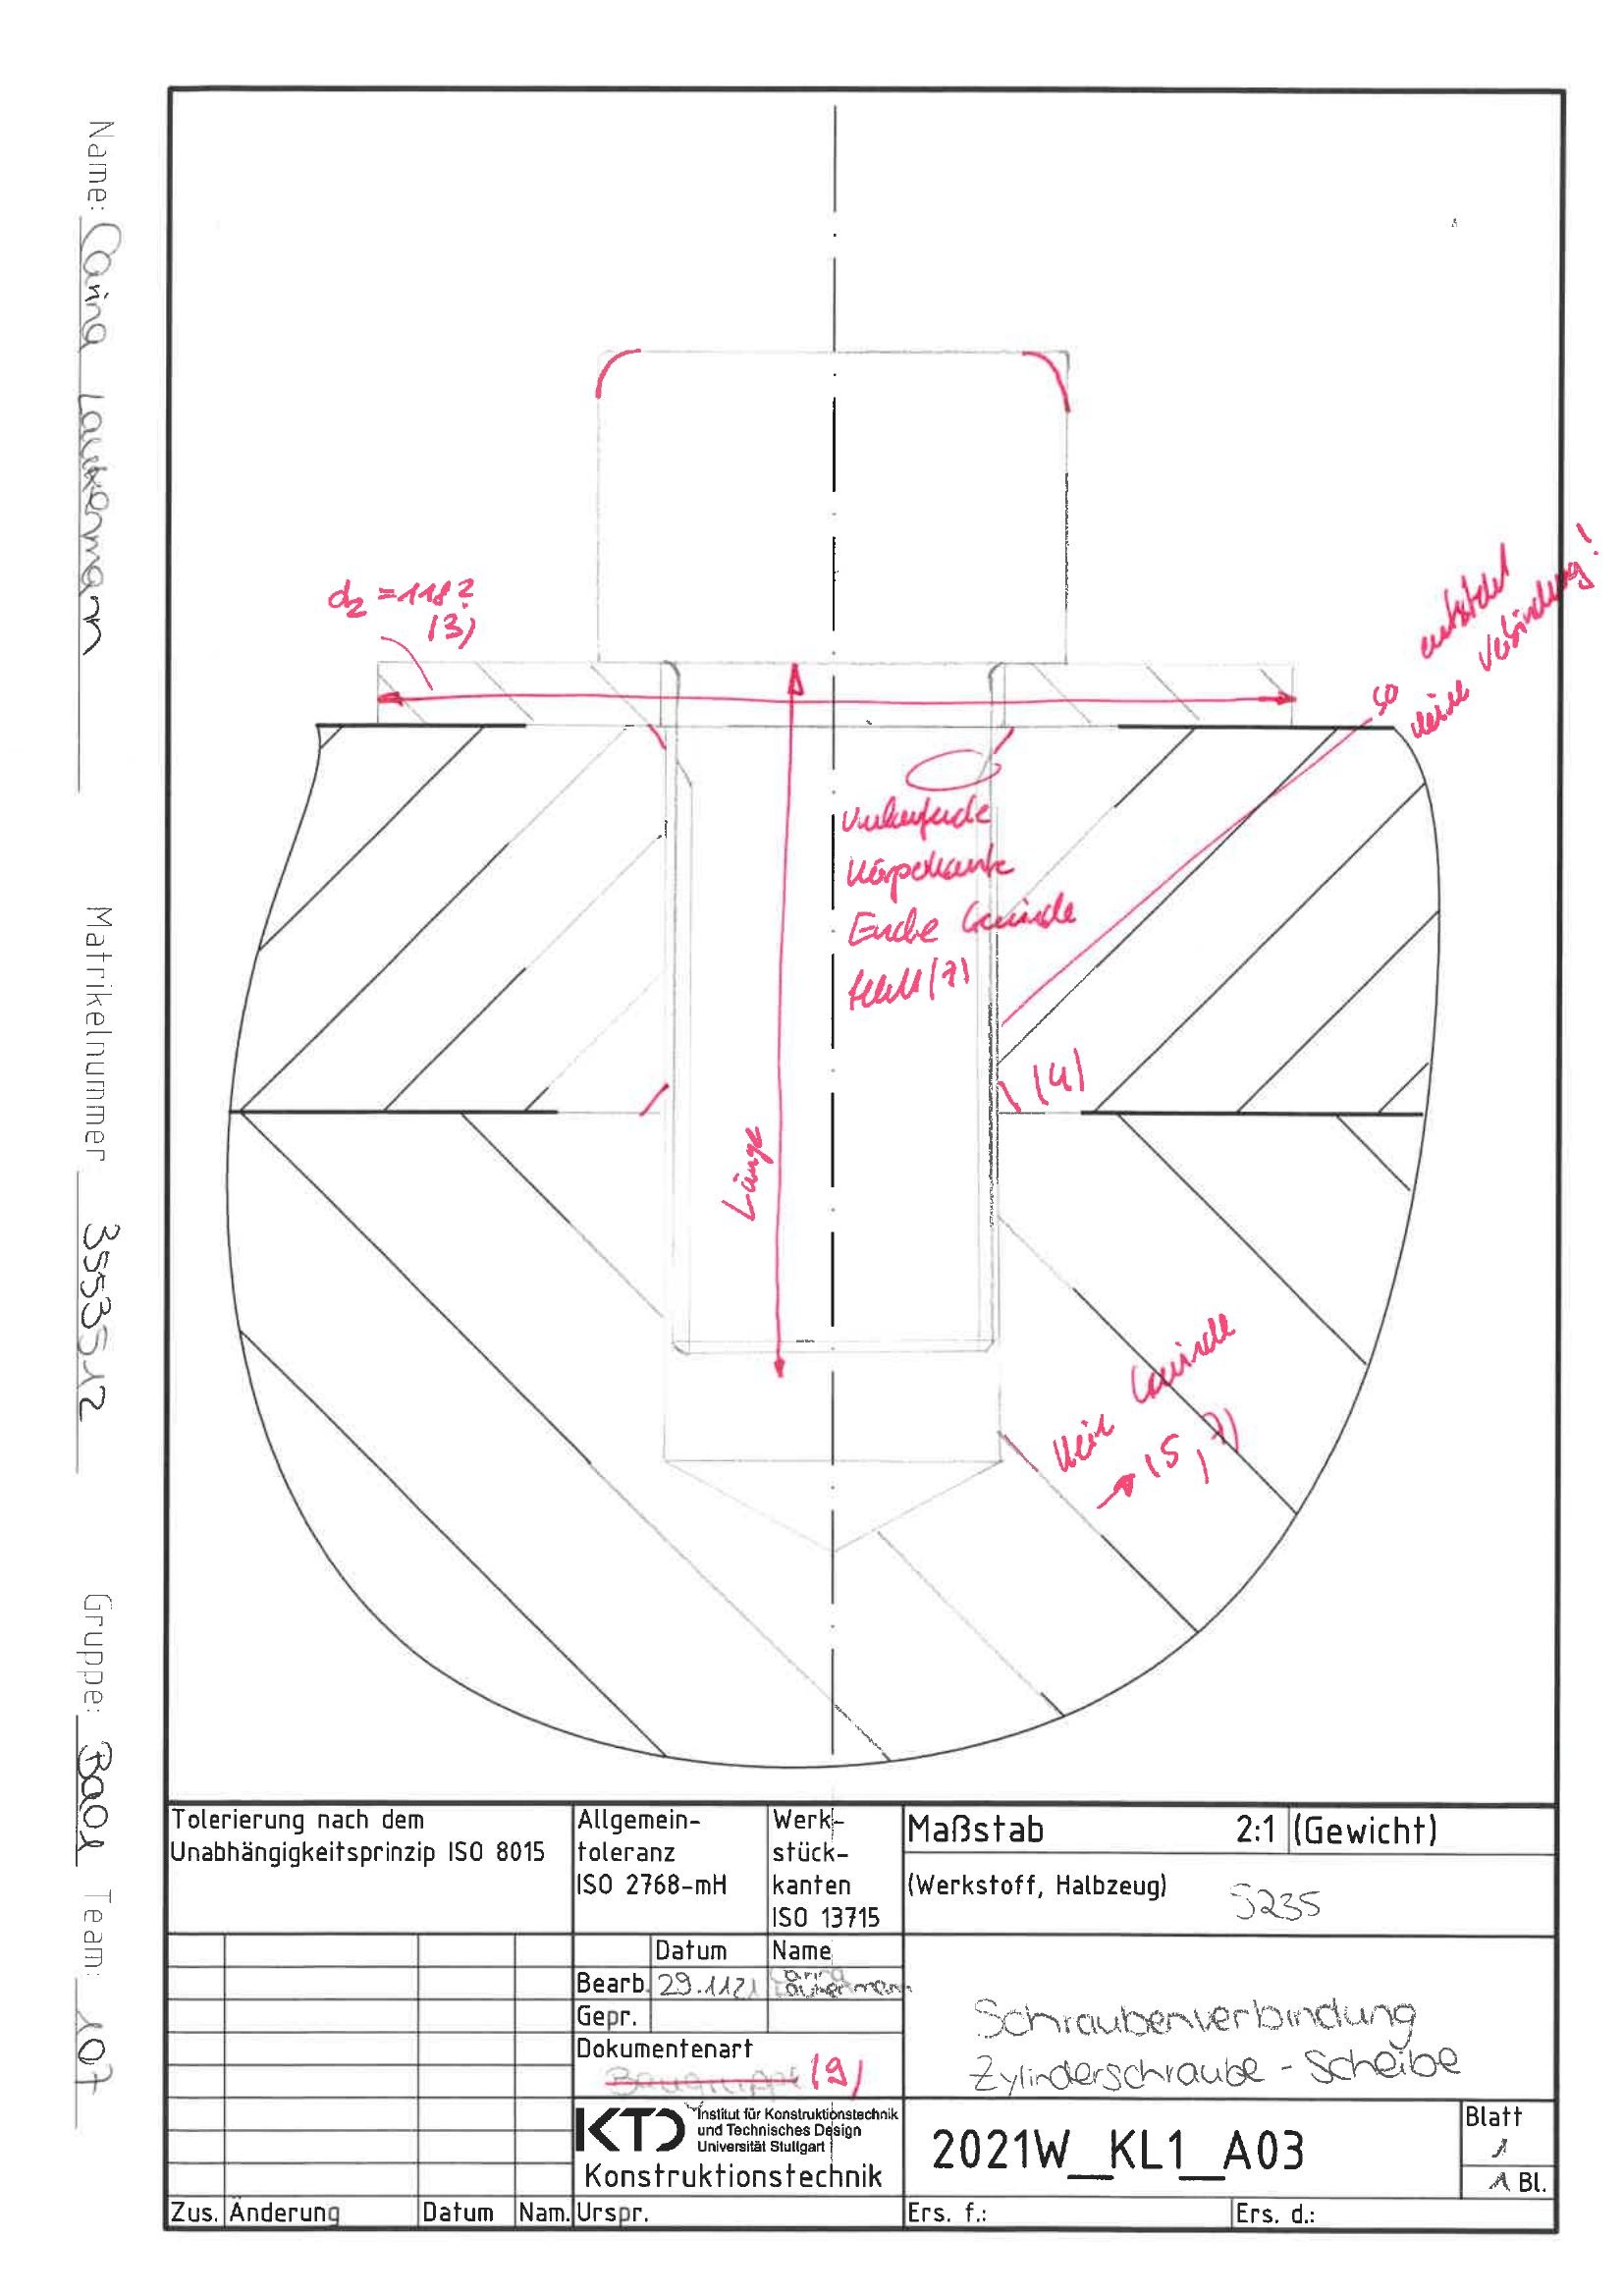 Name: Carina Lautenmann
Matrikelnummer 3553512
Gruppe: Team: 107
d₂ = 118?
(3)
so
entsteht
keine Verbindung!
Umlaufende
Körperkante
Ende Gewinde
fehlt (7)
(4)
Länge
kein Gewinde
→ (5, 7)
Tolerierung nach dem
Unabhängigkeitsprinzip ISO 8015
Allgemein-
toleranz
ISO 2768-mH
Werk-
stück-
kanten
ISO 13715
Maßstab 2:1 (Gewicht)
(Werkstoff, Halbzeug) S235
Datum Name
Bearb. 29.11.21
Gepr.
Dokumentenart
Baugruppe (9)
Schraubenverbindung
Zylinderschraube - Scheibe
KTD Institut für Konstruktionstechnik
und Technisches Design
Universität Stuttgart
Konstruktionstechnik
2021W_KL1_A03
Blatt
1
1 Bl.
Zus. Änderung Datum Nam. Urspr. Ers. f.: Ers. d.: